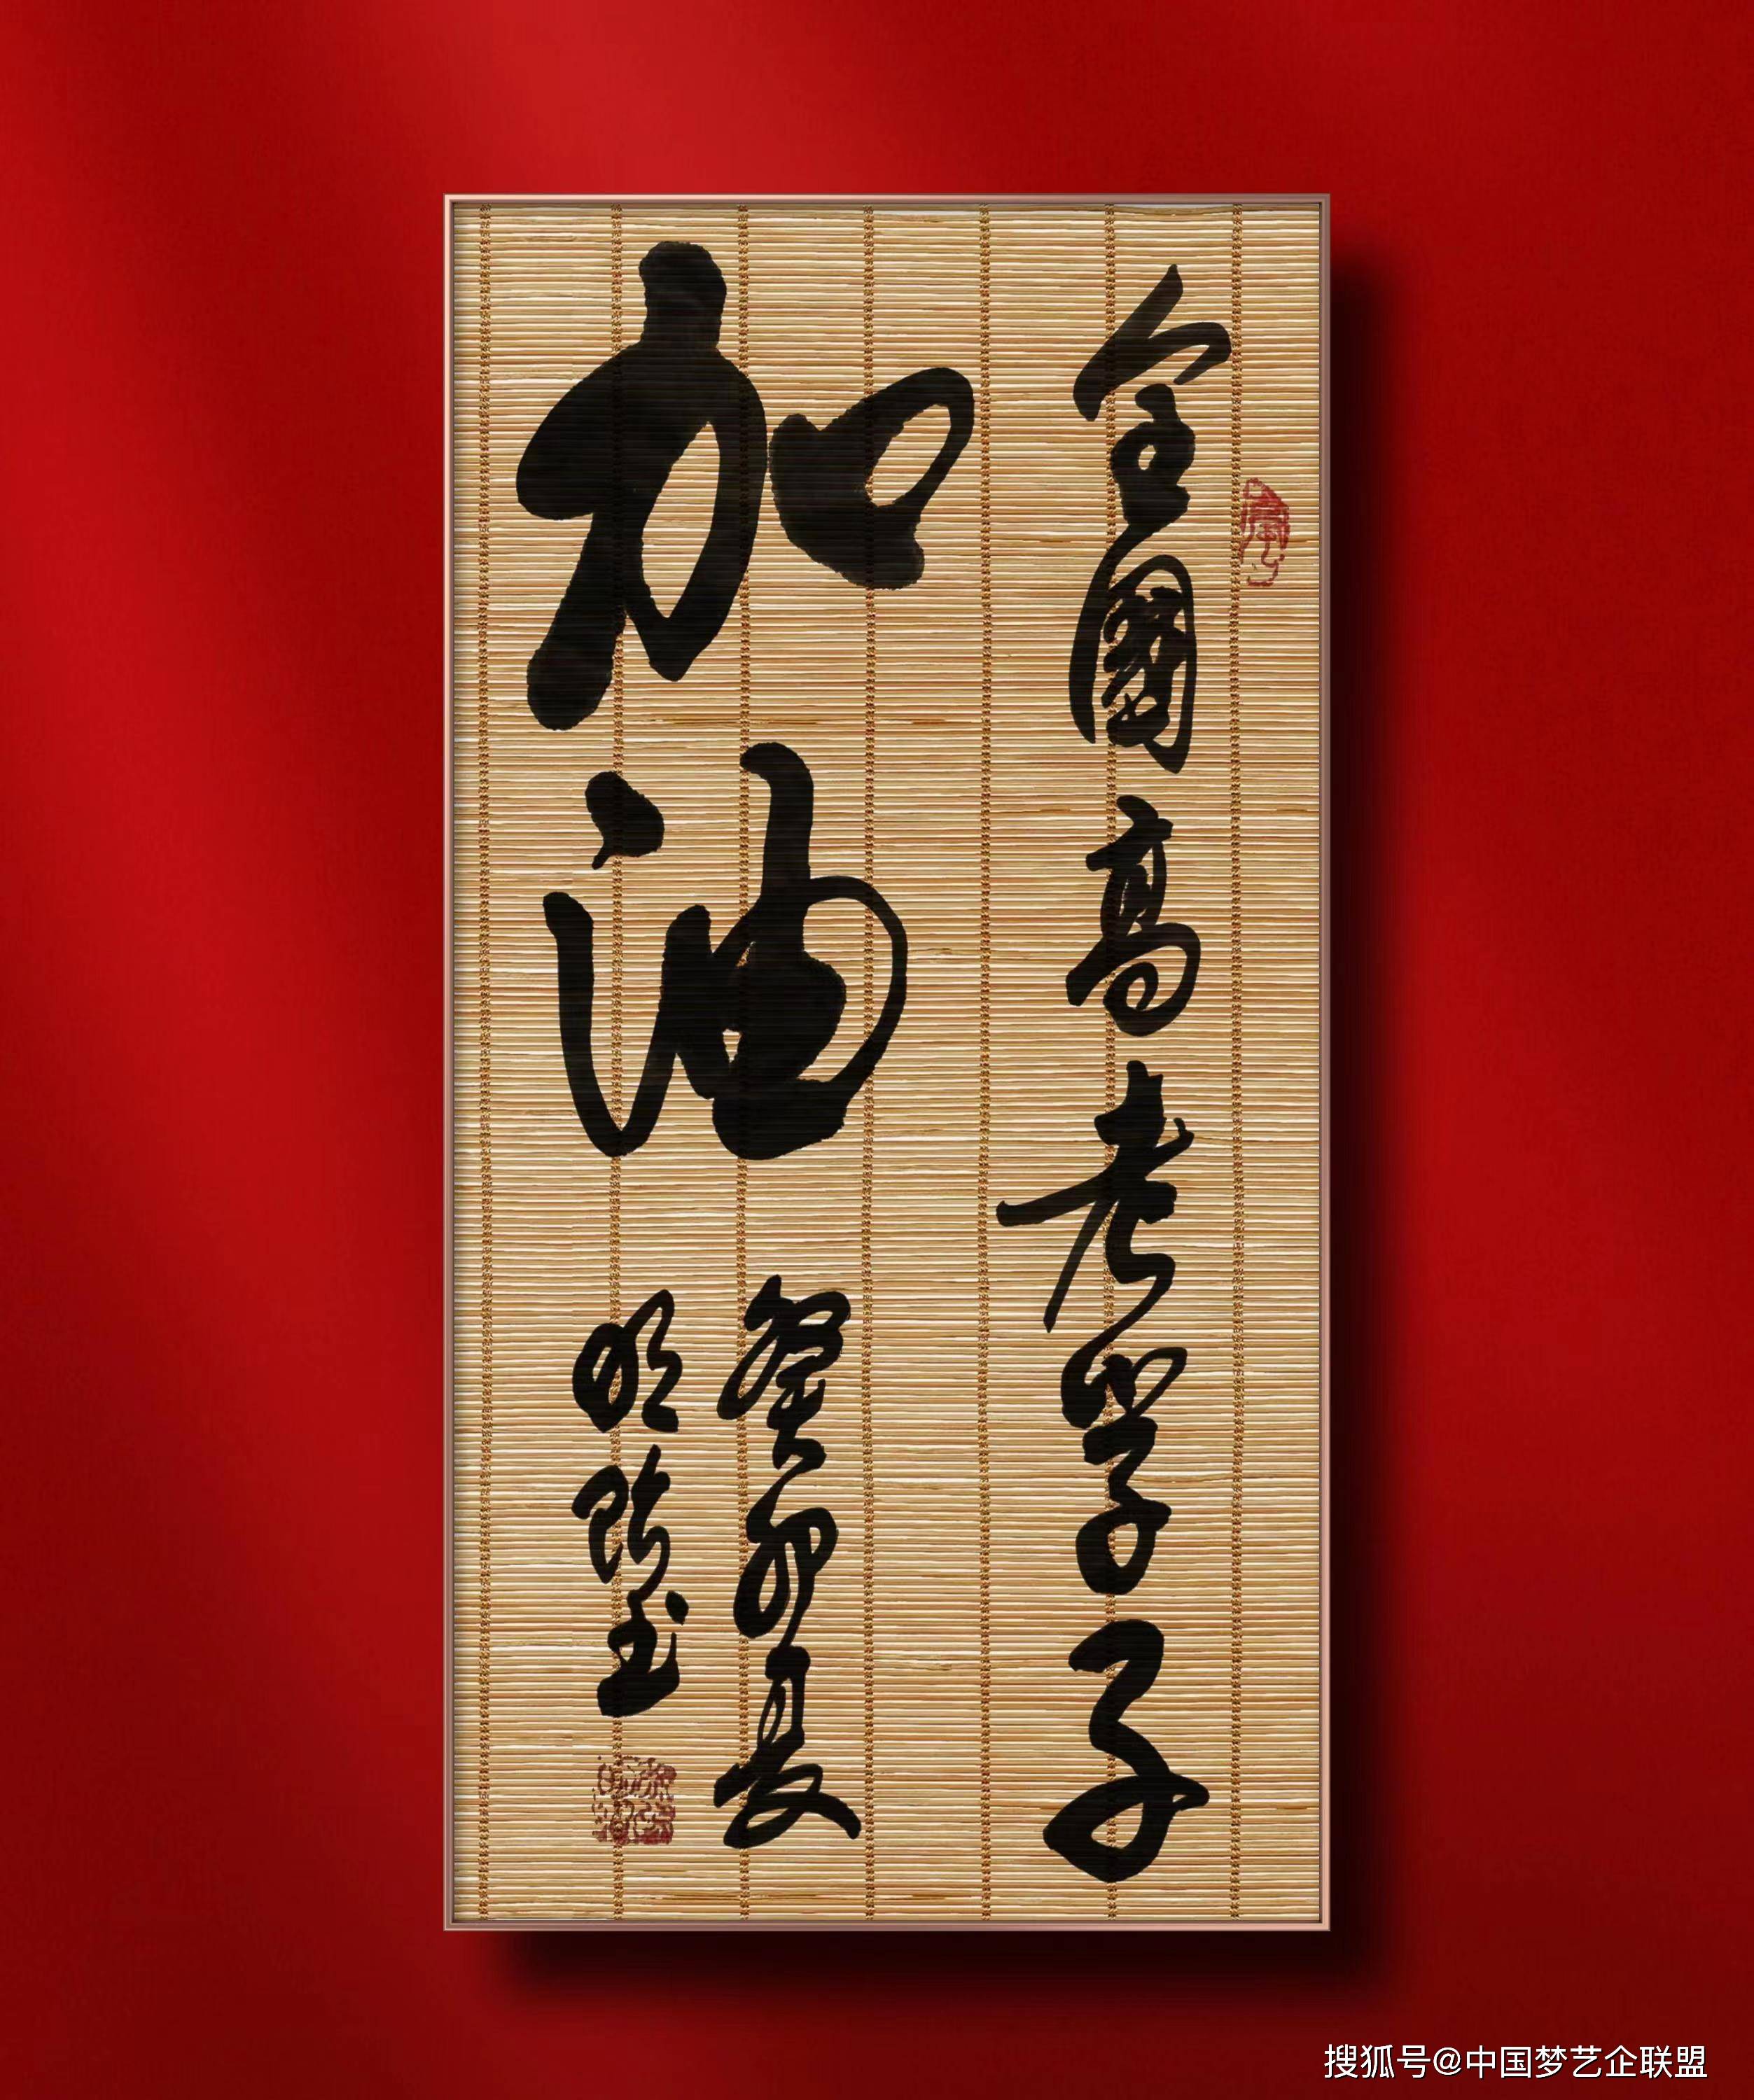 全國高考學子
加油
癸卯夏
明陽玉
搜狐号@中国梦艺企联盟